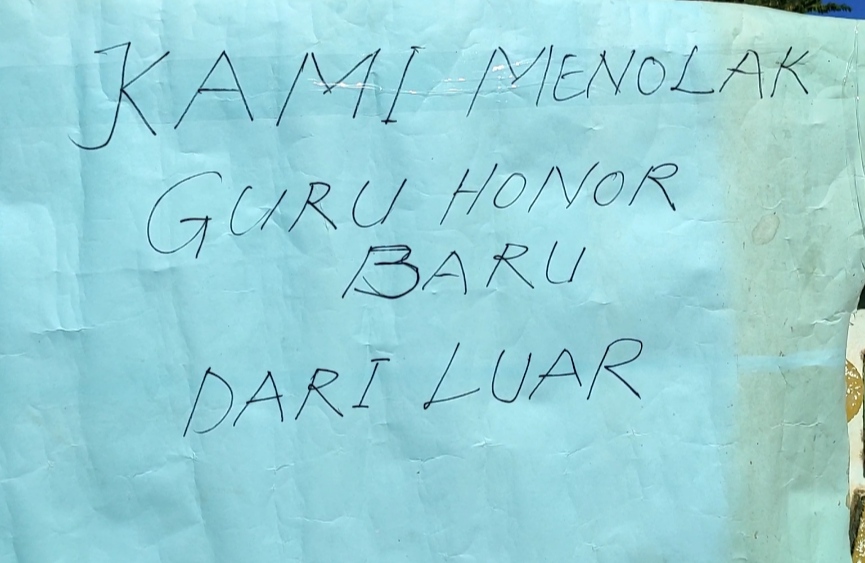 KAMI MENOLAK
GURU HONOR
BARU
DARI LUAR